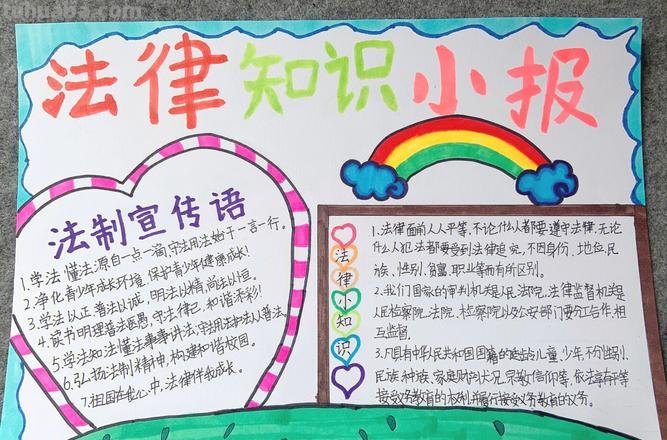 法律知识小报
法制宣传语
1.学法懂法源自一点一滴,守法用法始于一言一行。
2.净化青少年成长环境,保护青少年健康成长!
3.学法以正 普法以诚,明法以精 尚法以恒。
4.读书明理普法医愚,守法律己,和谐添彩!
5.学法知法懂法事事讲法,守法用法护法人人普法。
6.弘扬法制精神,构建和谐校园。
7.祖国在我心中,法律伴我成长。
法律小知识
1.法律面前人人平等,不论什么人都要遵守法律,无论
什么人犯法都要受到法律追究,不因身份、地位、民
族、性别、贫富、职业等而有所区别。
2.我们国家的审判机关是人民法院,法律监督机关是
人民检察院,法院、检察院以及公安部门要分工合作,相
互监督。
3.凡具有中华人民共和国国籍的适龄儿童、少年,不分性别、
民族、种族、家庭财产状况、宗教信仰等,依法享有平等
接受义务教育的权利,并履行接受义务教育的义务。